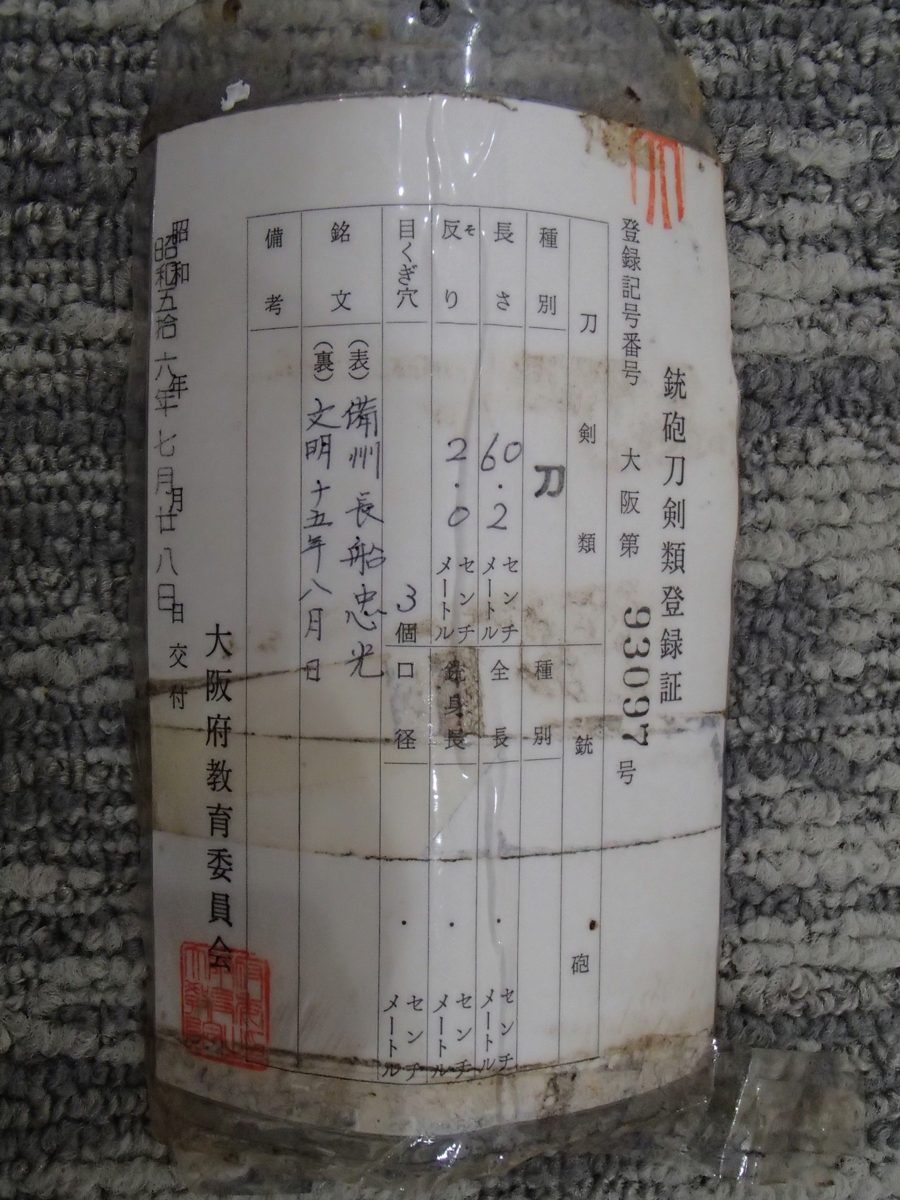 銃砲刀剣類登録証
登録記号番号 大阪第 93097 号
刀剣類 銃砲
種別 刀 種別
長さ 60.2 センチメートル 全長 ・ センチメートル
反り そ 2.0 センチメートル 銃身長 ・ センチメートル
目くぎ穴 3 個 口径 ・ センチメートル
銘文 (表) 備州長船忠光
(裏) 文明十五年八月日
備考
昭和 年 月 日交付
昭和五拾六年七月廿八日
大阪府教育委員会